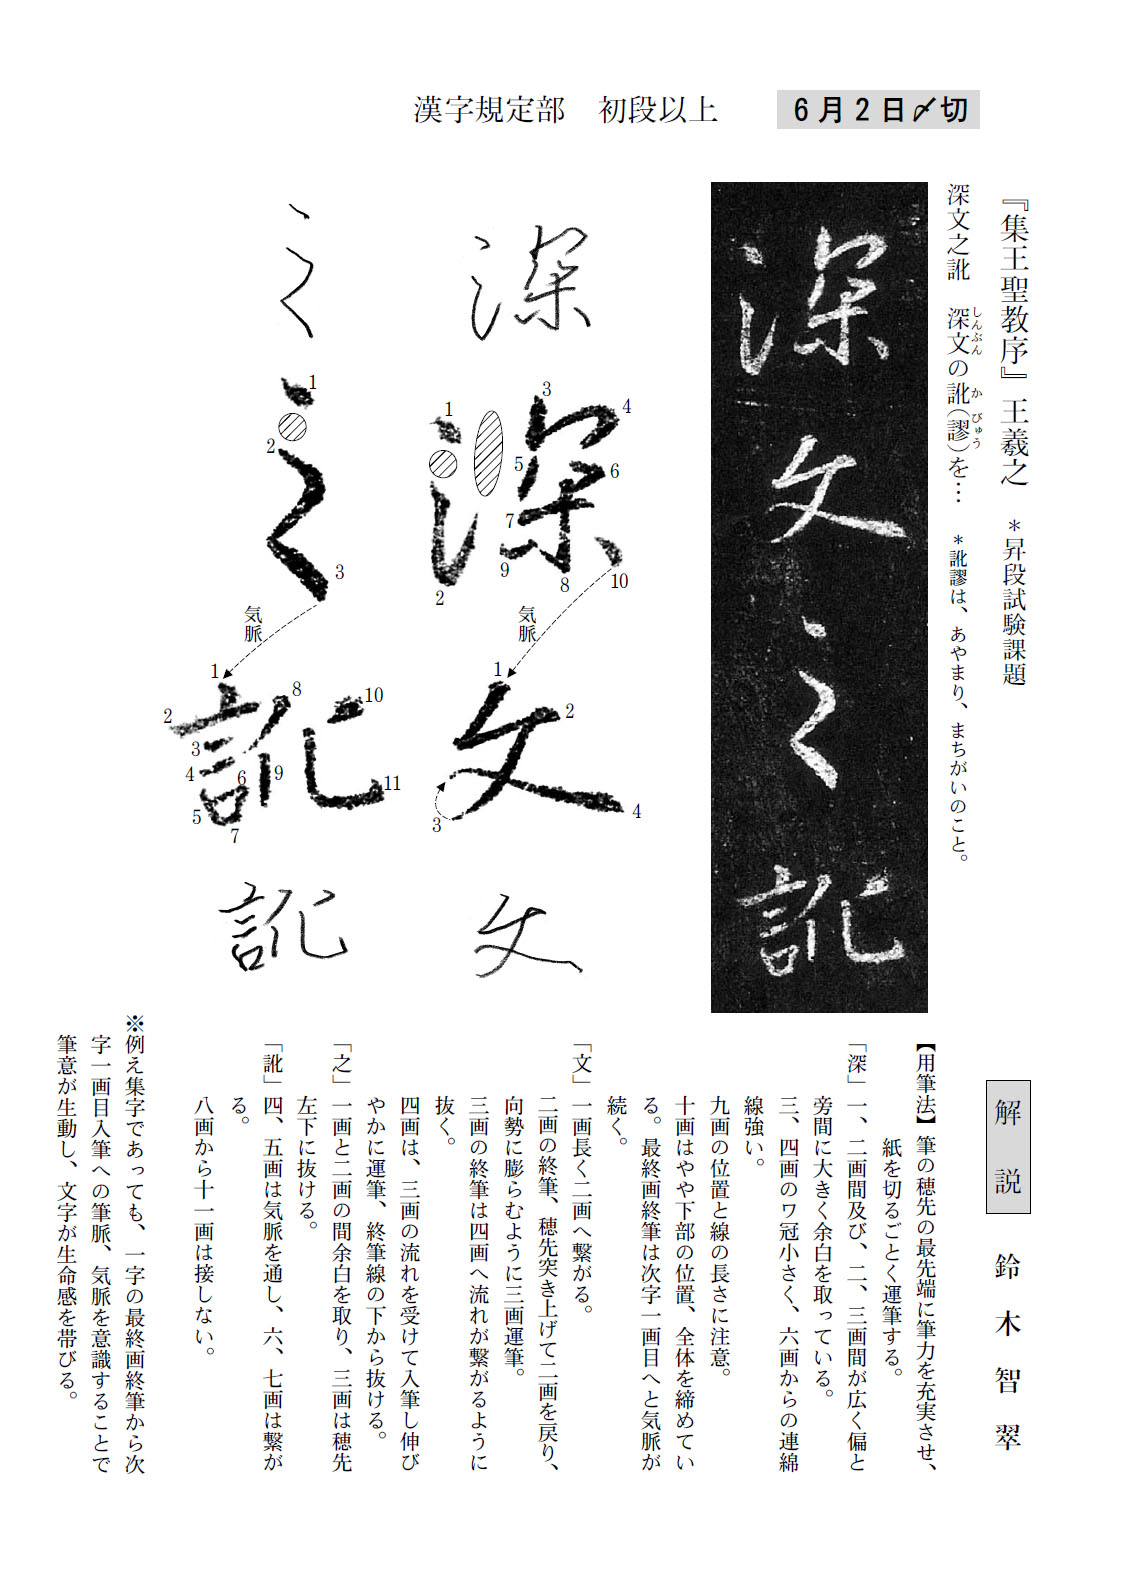 漢字規定部　初段以上
６月２日〆切
『集王聖教序』王羲之　＊昇段試験課題
深文之訛　深文の訛（謬）を…　＊訛謬は、あやまり、まちがいのこと。
しんぶん　か　びゅう
深文之訛
深
文
之
訛
深
1
2
3
4
5
6
7
8
9
10
気脈
文
1
2
3
4
之
1
2
3
気脈
訛
1
2
3
4
5
6
7
8
9
10
11
解説　鈴木智翠
【用筆法】筆の穂先の最先端に筆力を充実させ、
紙を切るごとく運筆する。
「深」一、二画間及び、二、三画間が広く偏と
旁間に大きく余白を取っている。
三、四画のワ冠小さく、六画からの連綿
線強い。
九画の位置と線の長さに注意。
十画はやや下部の位置、全体を締めてい
る。最終画終筆は次字一画目へと気脈が
続く。
「文」一画長く二画へ繋がる。
二画の終筆、穂先突き上げて二画を戻り、
向勢に膨らむように三画運筆。
三画の終筆は四画へ流れが繋がるように
抜く。
四画は、三画の流れを受けて入筆し伸び
やかに運筆、終筆線の下から抜ける。
「之」一画と二画の間余白を取り、三画は穂先
左下に抜ける。
「訛」四、五画は気脈を通し、六、七画は繋が
る。
八画から十一画は接しない。
※例え集字であっても、一字の最終画終筆から次
字一画目入筆への筆脈、気脈を意識することで
筆意が生動し、文字が生命感を帯びる。